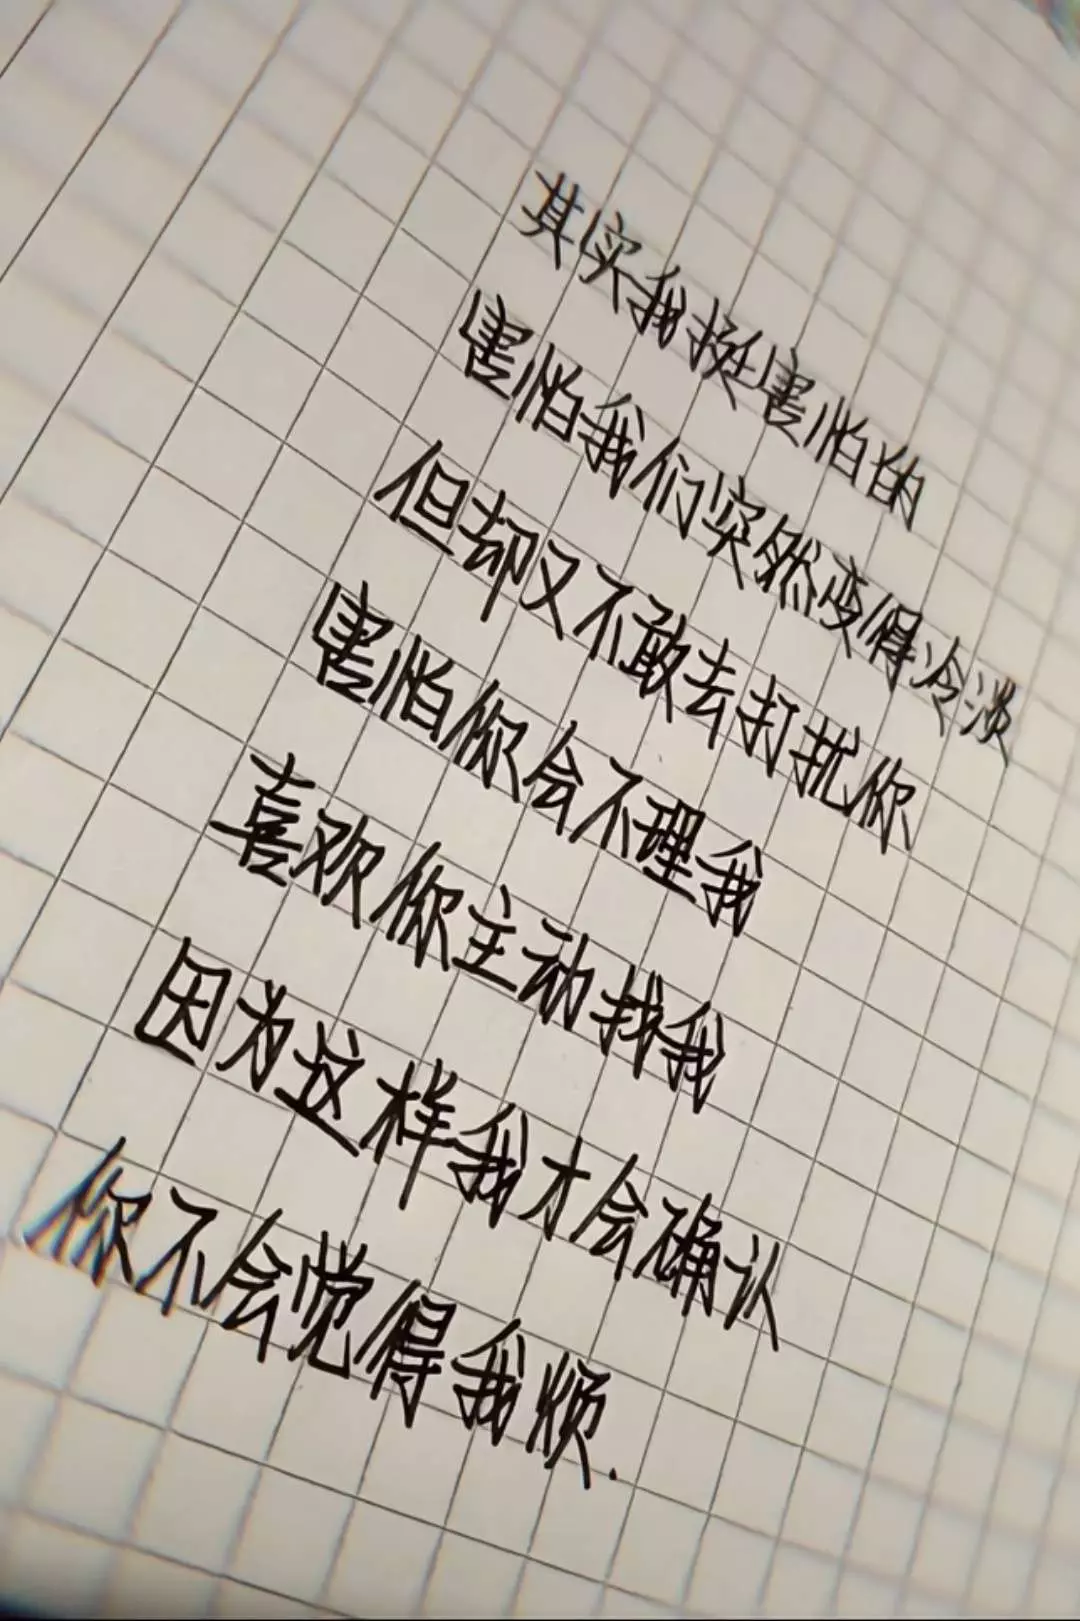 其实我挺害怕的
害怕我们突然变得冷淡
但却又不敢去打扰你
害怕你会不理我
喜欢你主动找我
因为这样我才会确认
你不会觉得我烦.